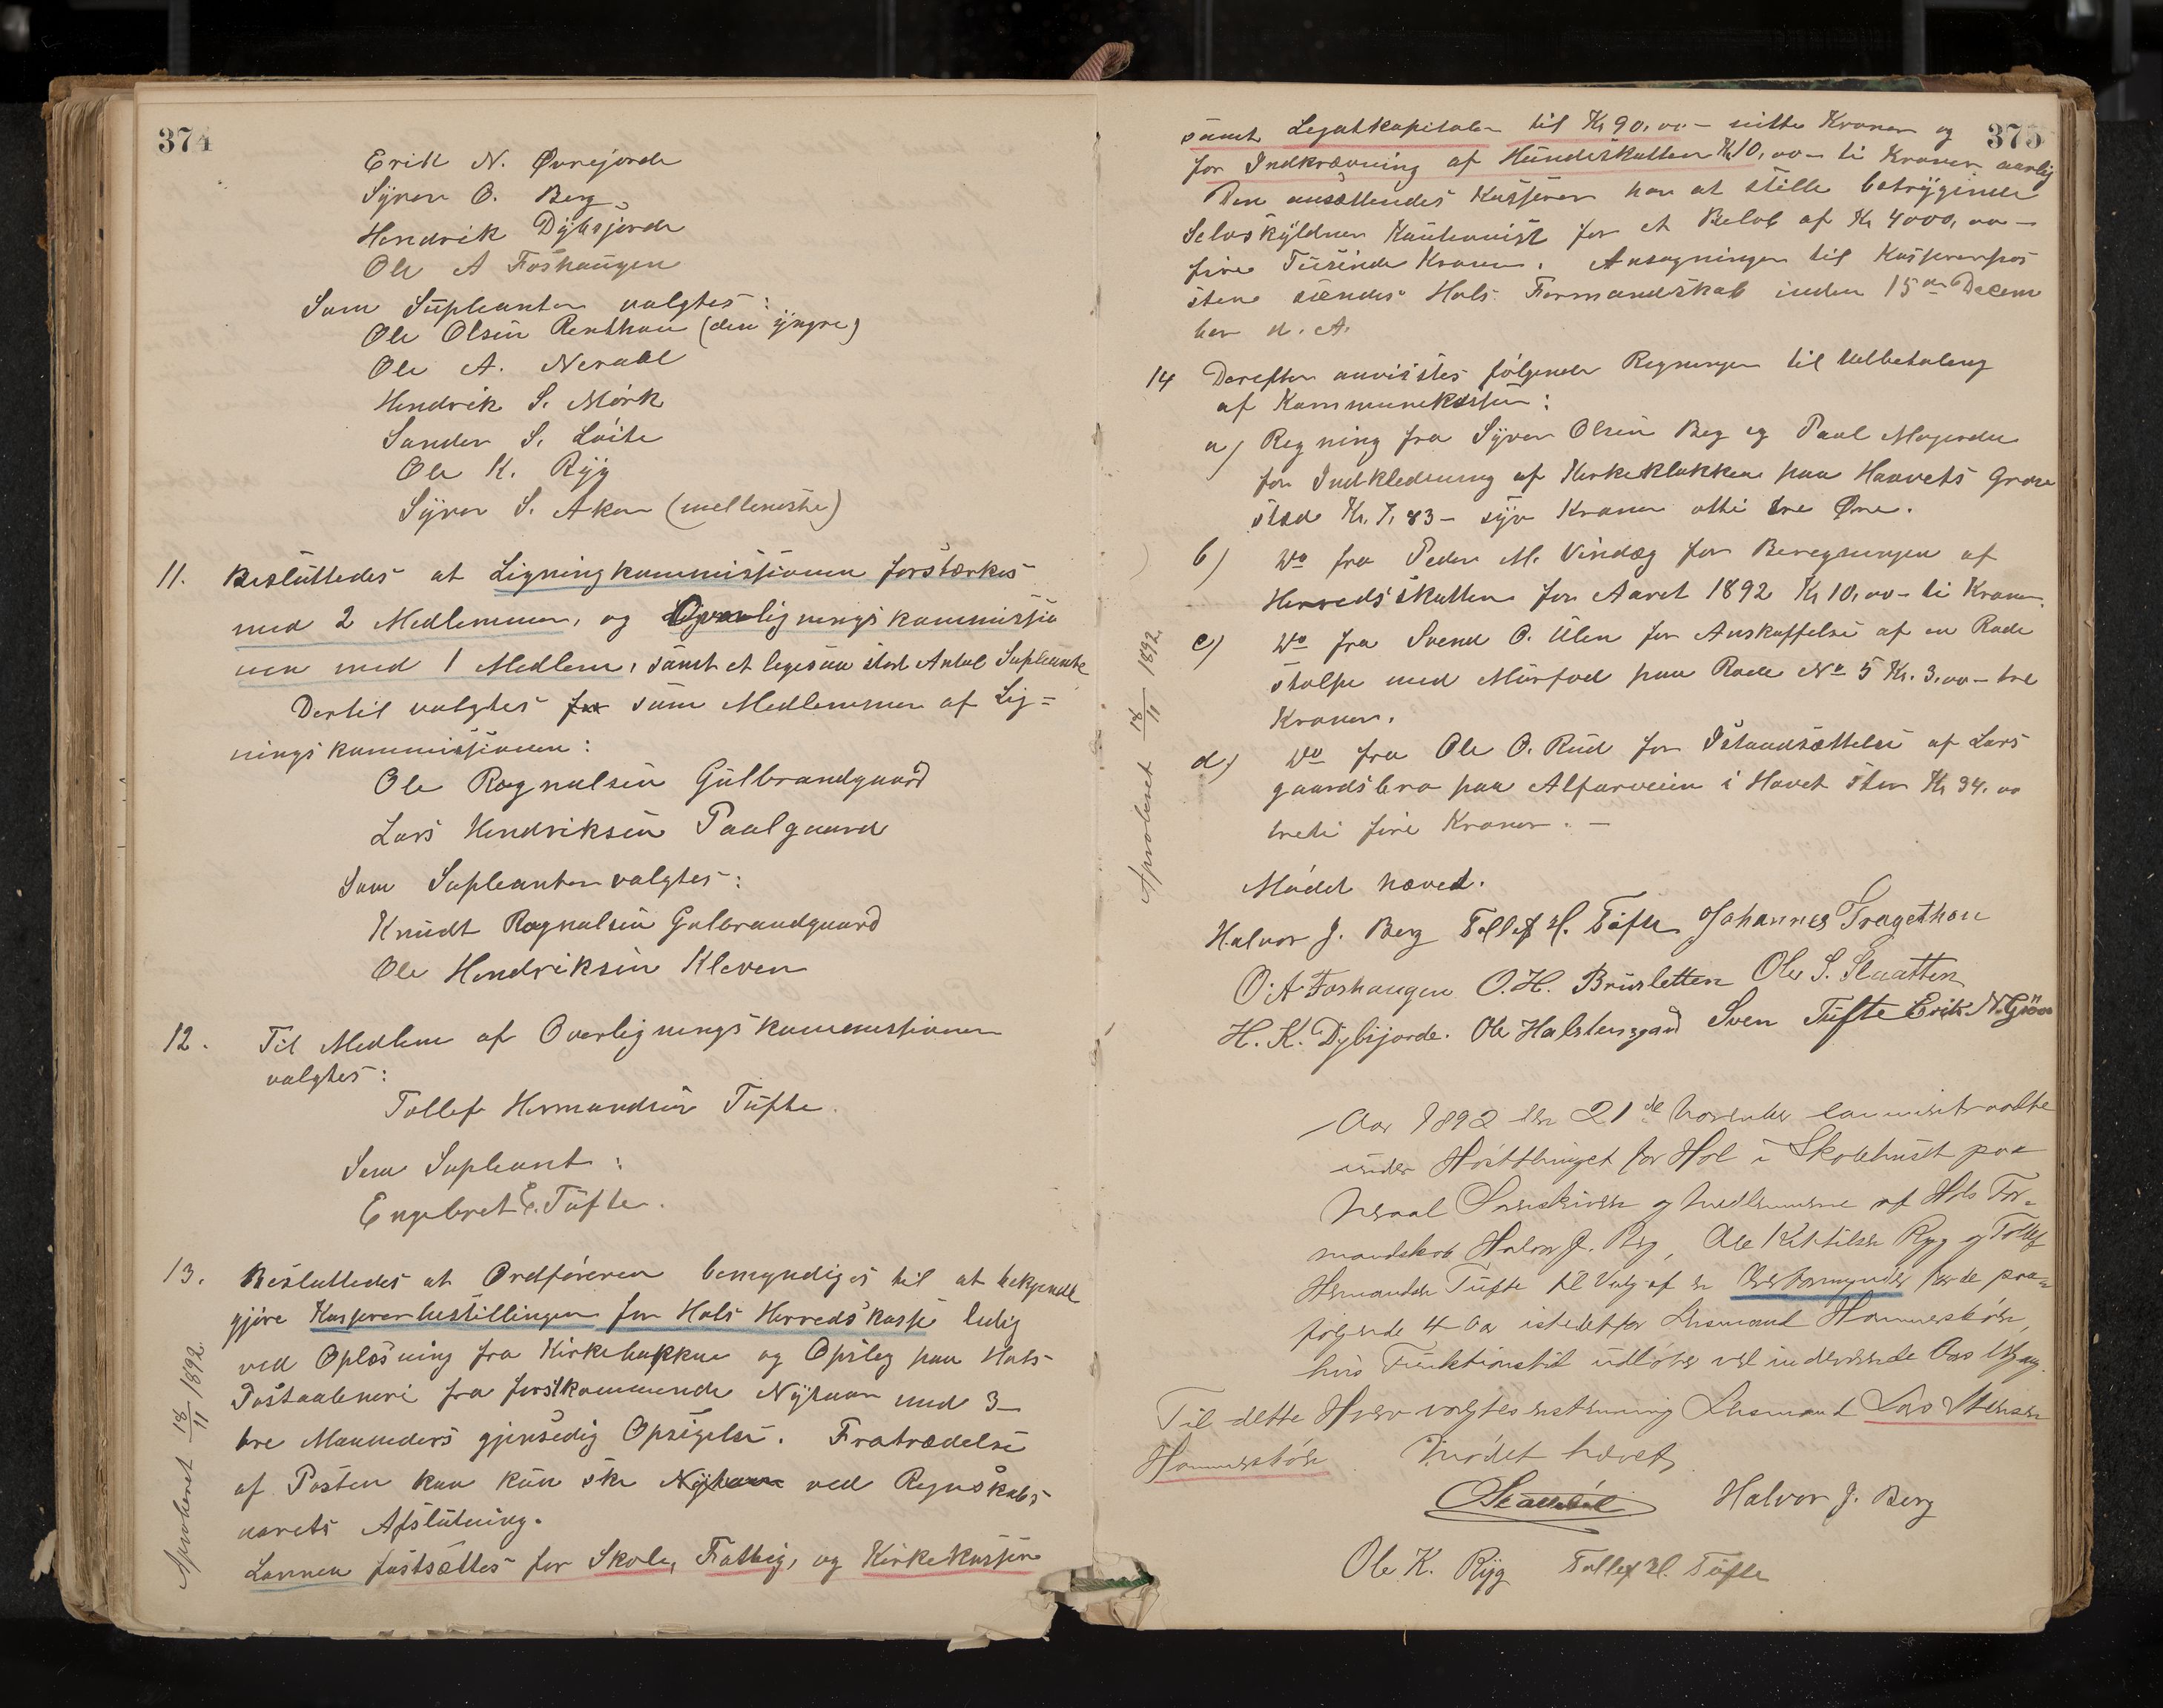 374
Erik N. Øvrejorde
Syver O. Berg
Hendrik Dybsjorde
Ole A Foshaugen
Som Supleanter valgtes:
Ole Olsen Renthon (den yngre)
Ole A. Neraal
Hendrik S. Mørk
Sander S. Løite
Ole K. Ryg
Syver S. Aker (mellemste)
11. Besluttedes at Ligningkommissionen forstærkes
med 2 Medlemmer, og Overligningskommissio
nen med 1 Medlem, samt et ligesaa stort Antal Supleante
Dertil valgtes for som Medlemmer af Lig=
ningskommissionen:
Ole Ragnalsen Gulbrandgaard
Lars Hendriksen Paalgaard
Som Supleanter valgtes:
Knudt Ragnalsen Gulbrandgaard
Ole Hendriksen Kleven
12. Til Medlem af Overligningskommissionen
valgtes:
Tollef Hermandsen Tufte.
Som Supleant:
Engebret E. Tufte.
13. Besluttedes at Ordføreren bemyndiges til at bekjendt
gjøre Kassererbestillingen for Hols Herredskasse ledig
ved Oplæsning fra Kirkebakken og Opslag paa Hols
Postaabneri fra førstkommende Nytaar med 3-
tre Maaneders gjensedig Opsigelse. Fratrædelse
af Posten kan kun ske Nytaar ved Regnskabs
aarets Afslutning.
Lønnen fastsættes for Skole, Fattig, og Kirkekassen
Aprobert 18/11 1892
375
samt Legatkapitalen til Kr 90,00 – nitti Kroner og
for Indkrævning af Hundeskatten Kr 10,00 – ti Kroner aarlig
Den ansættendes Kasserer har at stille betryggende
Selvskyldner Kautionist for et Beløb af Kr 4000,00 –
fire Tusinde Kroner. Ansøgninger til Kassererpos
sten sændes Hols Formandskab inden 15de Decem
ber d. A.
14 Derefter anvistes følgende Regninger til Udbetaling
af Kommunekassen:
a) Regning fra Syver Olsen Beg og Paal Mogerden
for Indklædning af Kirkeklokken paa Hoavets Grave
sted Kr. 7,83 – syv Kroner otti tre Øre.
b) Do fra Peder M. Vindæg for Beregningen af
Herredsskatten for Aaret 1892 Kr 10,00 – ti Kroner.
c) Do fra Svend O. Ulen for Anskaffelse af en Rode
stolpe med Murfod paa Rode No 5 Kr. 3,00 – tre
Kroner.
d) Do fra Ole O. Rud for Istandsættelse af Lars
gaardsbro paa Alfarveien i Hovet stor Kr 34.00
tredi fire Kroner. –
Aprobert 18/11 1892
Mødet hæved.
Halvor J. Berg Tollef H. Tufte Johannes Tragethon
O. A Foshaugen O. H. Brusletten Ole S. Slaatten
H. K. Dybsjorde. Ole Halstensgard Sven Tufte Erik N.
Aar 1892 den 21de November
under Høstthinget for Hol i Skolehuset paa
Neraal Sorenskriveren og Medlemmerne af Hols For-
mandskab Halvor J. Berg, Ole Kittilsen Ryg og Tollef
Hermandsen Tufte til Valg af en Overformynder for de paa-
følgende 4 Aar istedetfor Lensmand Hammersbøen,
hvis Funktionstid udløber ved indeværende Aars Udgang.
Til dette Hverv valgtes enstemmig Lensmand Lars
Hammersbøen Mødet hævet,
Halvor J. Berg
Ole K. Ryg Tollef H. Tufte